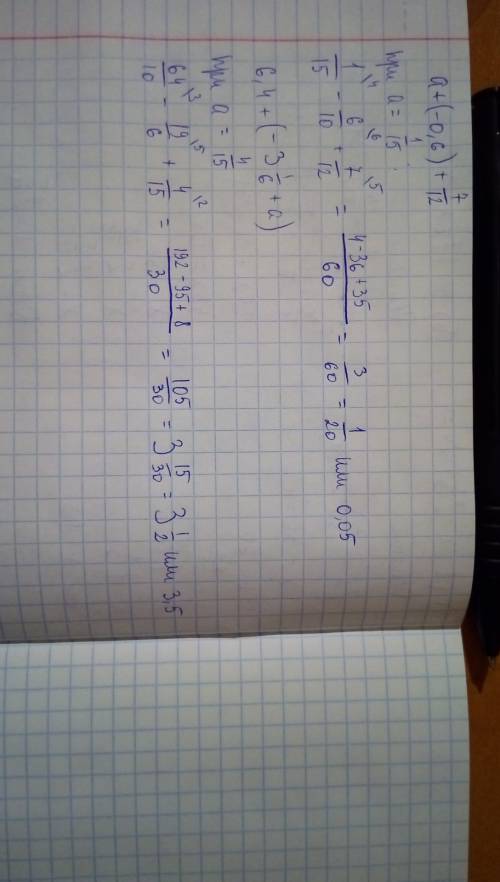 a + (-0,6) + 7/12
при a = 1/15.
1/15 \4 - 6/10 \6 + 7/12 \5 = 4-36+35/60 = 3/60 = 1/20 или 0,05
6,4 + (-3 1/6 + a)
при a = 4/15
64/10 \3 - 19/6 \5 + 4/15 \2 = 192-95+8/30 = 105/30 = 3 15/30 = 3 1/2 или 3,5